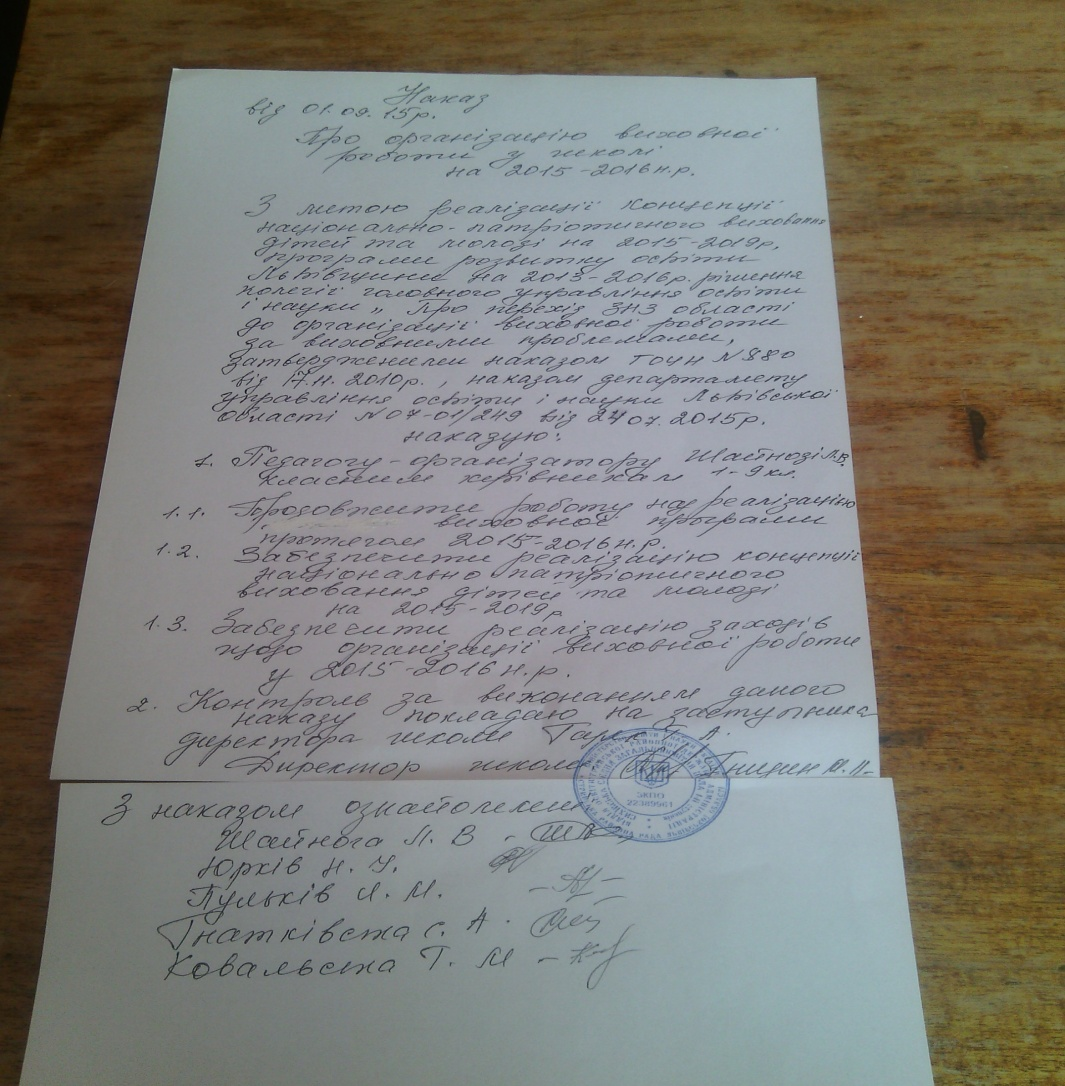 Наказ
від 01.09.15р.
Про організацію виховної
роботи у школі
на 2015-2016н.р.
З метою реалізації концепції
національно-патріотичного виховання
дітей та молоді на 2015-2019р,
програми розвитку освіти
Львівщини на 2013-2016р. рішення
колегії головного управління освіти
і науки „ Про перехід ЗНЗ області
до організації виховної роботи
за виховними проблемами,
затвердженими наказом ГОУН №880
від 17.11.2010р., наказом департамету
управління освіти і науки Львівської
області №07-01/249 від 24.07.2015р.
наказую:
1. Педагогу-організатору Шайнозі Л.В.
класним керівникам 1-9 кл.
1.1. Продовжити роботу над реалізацією
виховної програми
протягом 2015-2016н.р.
1.2. Забезпечити реалізацію концепції
національно патріотичного
виховання дітей та молоді
на 2015-2019р
1.3. Забезпечити реалізацію заходів
щодо організації виховної роботи
у 2015-2016н.р.
2. Контроль за виконанням даного
наказу покладаю на заступника
директора школи
Директор школи
ЗКПО
22389961
З наказом ознайомлені
Шайнога Л. В -
Юрків Н. У.
Пульків Л. М.
Гнатківська С. А.
Ковальська Т. М -